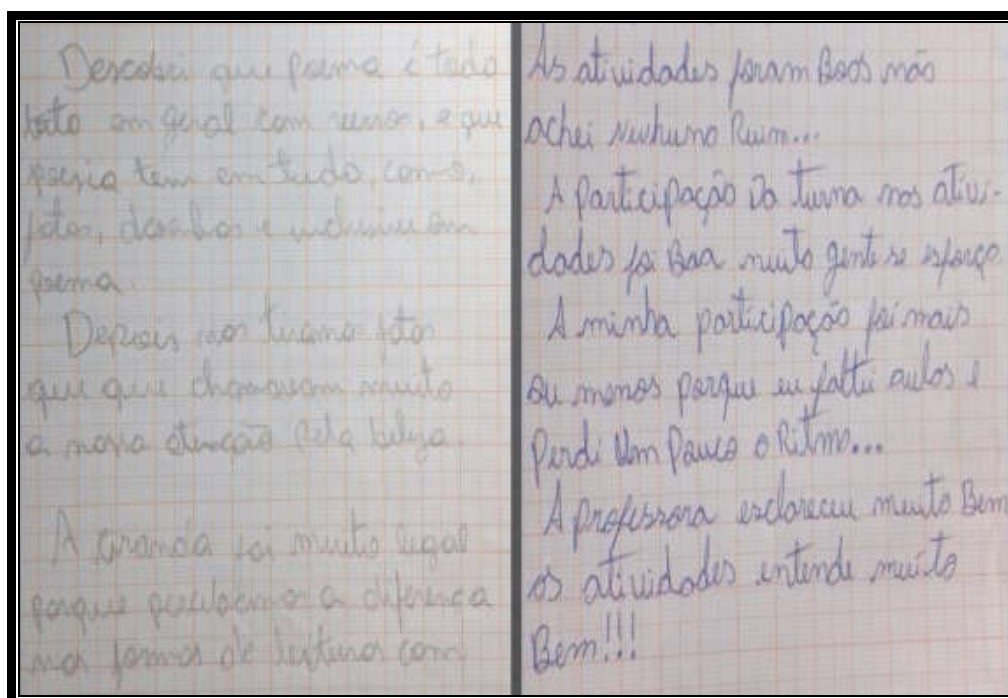 Descobri que poema é todo
texto em geral com versos, e que
poesia tem em tudo, como,
fotos, desenhos e inclusive em
poema.
Depois nos tiramo fotos
que que chamavam muito
a nossa atenção pela beleza
A ciranda foi muito legal
porque percebemos a diferença
nas formas de leituras com
As atividades foram Boas não
achei Nenhuma Ruim...
A Participação Da turma nas ativi-
dades foi Boa muita gente se esforço
A minha participação foi mais
ou menos porque eu faltei aulas e
Perdi Um Pouco o Ritmo...
A professora esclareceu muito Bem
as atividades entende muito
Bem!!!